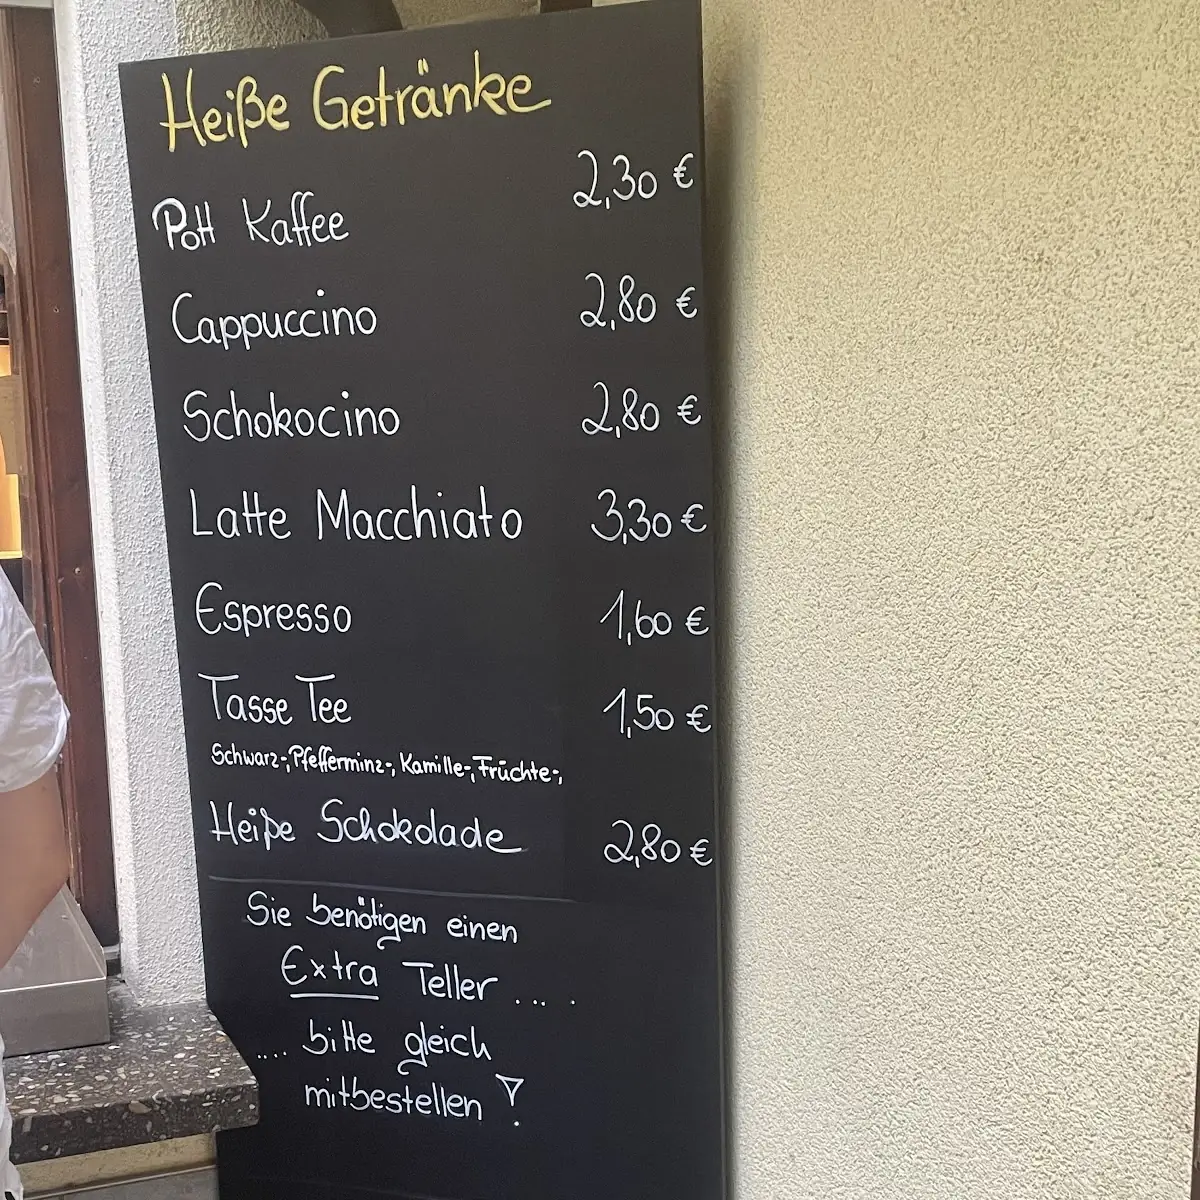 Heiße Getränke
Pott Kaffee 2,30 €
Cappuccino 2,80 €
Schokocino 2,80 €
Latte Macchiato 3,30 €
Espresso 1,60 €
Tasse Tee 1,50 €
Schwarz-, Pfefferminz-, Kamille-, Früchte-,
Heiße Schokolade 2,80 €
Sie benötigen einen
Extra Teller ... .
.... bitte gleich
mitbestellen !